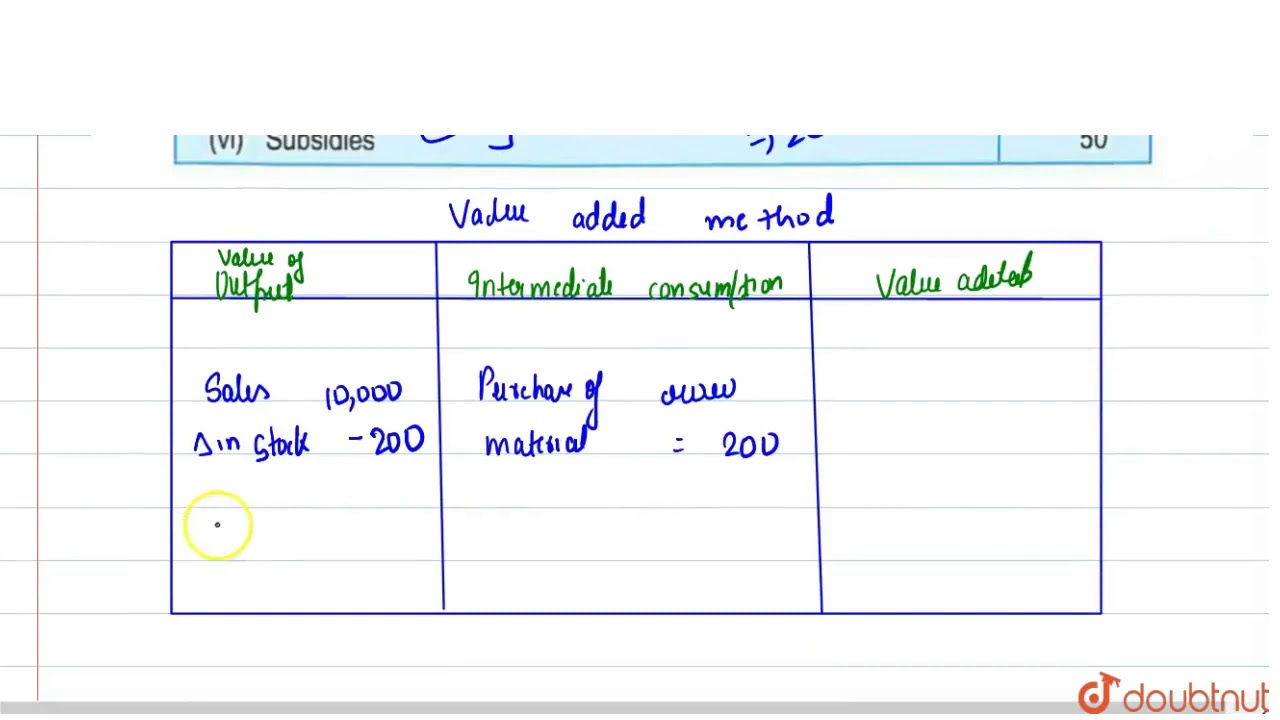 (vi) Subsidies 50
Value added method
Value of
Output
Intermediate consumption
Value added
Sales 10,000
Δ in stock -200
Purchase of
material = 200
doubtnut